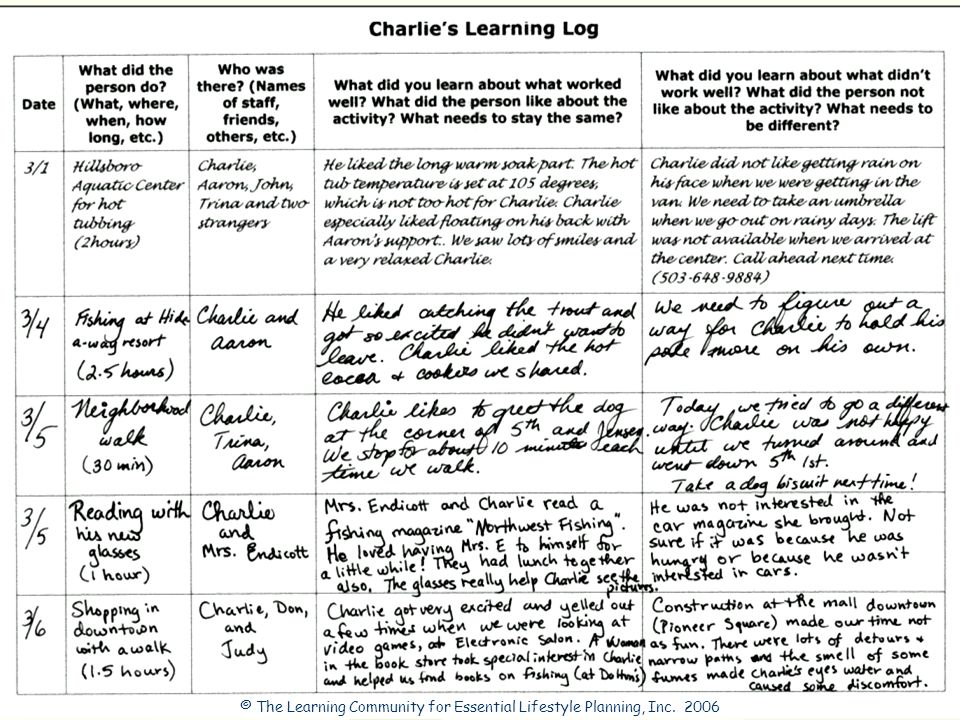 Charlie's Learning Log
Date
What did the
person do?
(What, where,
when, how
long, etc.)
Who was
there? (Names
of staff,
friends,
others, etc.)
What did you learn about what worked
well? What did the person like about the
activity? What needs to stay the same?
What did you learn about what didn't
work well? What did the person not
like about the activity? What needs to
be different?
3/1
Hillsboro
Aquatic Center
for hot
tubbing
(2hours)
Charlie,
Aaron, John,
Trina and two
strangers
He liked the long warm soak part. The hot
tub temperature is set at 105 degrees,
which is not too hot for Charlie. Charlie
especially liked floating on his back with
Aaron's support.. We saw lots of smiles and
a very relaxed Charlie.
Charlie did not like getting rain on
his face when we were getting in the
van. We need to take an umbrella
when we go out on rainy days. The lift
was not available when we arrived at
the center. Call ahead next time.
(503-648-9884)
3/4
Fishing at Hide
a-way resort
(2.5 hours)
Charlie and
Aaron
He liked catching the trout and
got so excited he didn't want to
leave. Charlie liked the hot
cocoa & cookies we shared.
We need to figure out a
way for Charlie to hold his
pole more on his own.
3/5
Neighborhood
walk
(30 min)
Charlie,
Trina,
Aaron
Charlie likes to greet the dog
at the corner of 5th and Jensen.
We stop for about 10 minutes each
time we walk.
Today we tried to go a different
way. Charlie was not happy
until we turned around and
went down 5th 1st.
Take a dog biscuit next time!
3/5
Reading with
his new
glasses
(1 hour)
Charlie
and
Mrs. Endicott
Mrs. Endicott and Charlie read a
fishing magazine "Northwest Fishing".
He loved having Mrs. E to himself for
a little while! They had lunch together
also. The glasses really help Charlie see the
pictures.
He was not interested in the
car magazine she brought. Not
sure if it was because he was
hungry or because he wasn't
interested in cars.
3/6
Shopping in
downtown
with a walk
(1.5 hours)
Charlie, Don,
and
Judy
Charlie got very excited and yelled out
a few times when we were looking at
video games, at Electronic Salon. A woman
in the book store took special interest in Charlie
and helped us find books on fishing (at Daltons)
Construction at the mall downtown
(Pioneer Square) made our time not
as fun. There were lots of detours &
narrow paths and the smell of some
fumes made Charlie's eyes water and
caused some discomfort.
© The Learning Community for Essential Lifestyle Planning, Inc. 2006